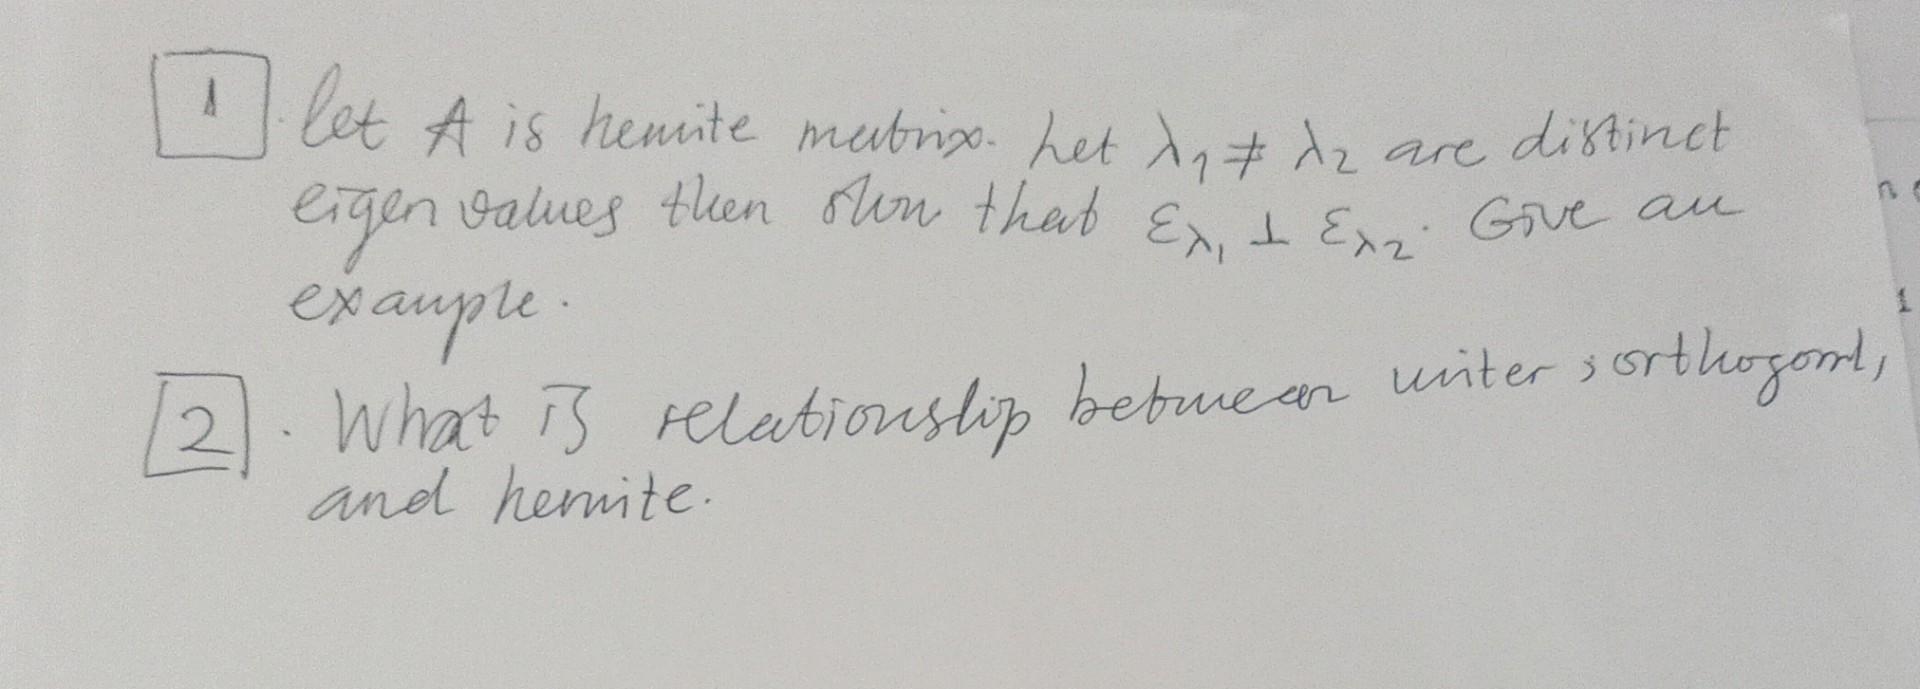 1 . let A is hemite matrix. Let λ1 ≠ λ2 are distinct
eigen values then show that ε_λ1 ⊥ ε_λ2. Give an
example.
2 . What is relationship between uniter, orthogonal,
and hemite.